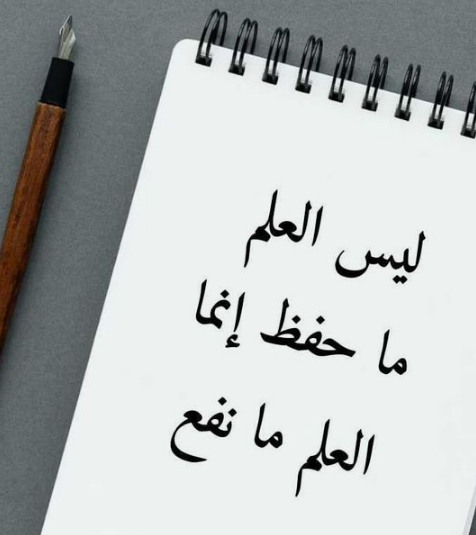 ليس العلم
ما حفظ إنما
العلم ما نفع